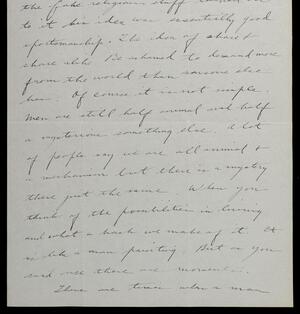 the fake religious stuff
to it his idea was essentially good
sportsmanship. The idea of share &
share alike. Be ashamed to demand more
from the world than someone else
has. Of course it is not simple.
Men are still half animal and half
a mysterious something else. A lot
of people say we are all animal &
a mechanism but there is a mystery
there just the same. When you
think of the possibilities in living
and what a hash we make of it. It
is like a man painting. But as you
said once there are moments.
There are times when a man